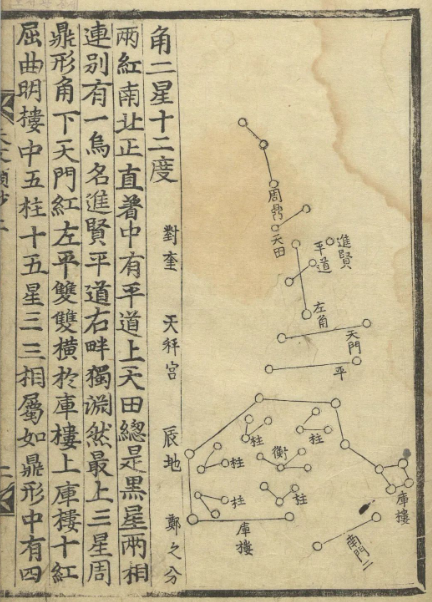 周鼎
天田
進賢
平道
左角
天門
平
柱
柱
衡
柱
柱
柱
庫樓
庫樓
南門二
角二星十二度 對奎 天秤宮 辰地 鄭之分
兩紅南北正直著中有平道上天田總是黑星兩相
連別有一烏名進賢平道右畔獨淵然最上三星周
鼎形角下天門紅左平雙雙橫於庫樓上庫樓十紅
屈曲明樓中五柱十五星三三相屬如鼎形中有四